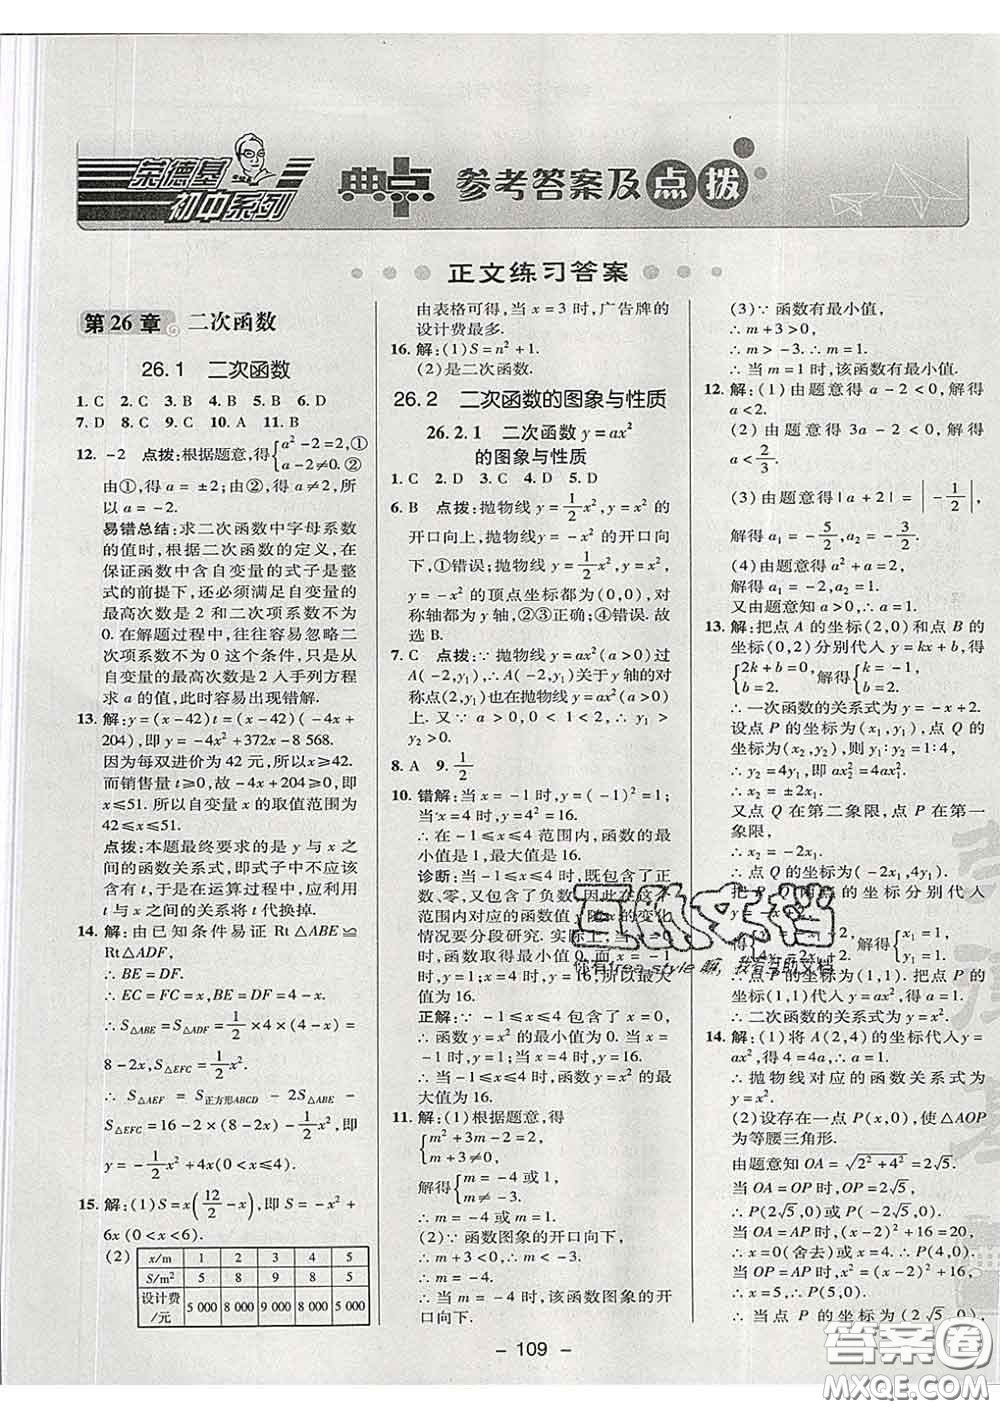 荣德基
初中系列
典点 参考答案及点拨
正文练习答案
第26章 二次函数
26.1 二次函数
1. C 2. C 3. B 4. B 5. B 6. D
7. D 8. C 9. C 10. A 11. B
12. -2 点拨:根据题意,得{a²-2=2,① a-2≠0.②
由①,得 a=±2;由②,得 a≠2,所
以 a=-2.
易错总结:求二次函数中字母系数
的值时,根据二次函数的定义,在
保证函数中含自变量的式子是整
式的前提下,还必须满足自变量的
最高次数是 2 和二次项系数不为
0. 在解题过程中,往往容易忽略二
次项系数不为 0 这个条件,只是从
自变量的最高次数是 2 入手列方程
求 a 的值,此时容易出现错解.
13. 解:y=(x-42)t=(x-42)(-4x+
204),即 y=-4x²+372x-8 568.
因为每双进价为 42 元,所以 x≥42.
而销售量 t≥0,故-4x+204≥0,即
x≤51. 所以自变量 x 的取值范围为
42≤x≤51.
点拨:本题最终要求的是 y 与 x 之
间的函数关系,即式子中不应该含
有 t,于是在运算过程中,要利用
t 与 x 之间的关系将 t 代换掉.
14. 解:由已知条件易证 Rt△ABE≌
Rt△ADF,
∴BE=DF.
∴EC=FC=x,BE=DF=4-x.
∴S△ABE=S△ADF=1/2×4×(4-x)=
8-2x,S△EFC=1/2x².
∴S△AEF=S正方形ABCD-2S△ABE-
S△EFC=16-2×(8-2x)-1/2x²,即
y=-1/2x²+4x(0<x≤4).
15. 解:(1)S=x(12/2-x),即 S=-x²+
6x(0<x<6).
(2) x/m 1 2 3 4 5
S/m² 5 8 9 8 5
设计费/元 5 000 8 000 9 000 8 000 5 000
由表格可得,当 x=3 时,广告牌的
设计费最多.
16. 解:(1)S=n²+1.
(2)是二次函数.
26.2 二次函数的图象与性质
26.2.1 二次函数 y=ax²
的图象与性质
1. C 2. C 3. C 4. D 5. D
6. B 点拨:抛物线 y=1/2x²,y=x² 的
开口向上,抛物线 y=-x² 的开口向
下,①错误;抛物线 y=1/2x²,y=x²,
y=-x² 的顶点坐标都为(0,0),对
称轴都为 y 轴,②③正确;④错误.故
选 B.
7. C 点拨:∵抛物线 y=ax²(a>0)过
A(-2,y₁),∴A(-2,y₁)关于 y 轴的对
称点(2,y₁)也在抛物线 y=ax²(a>0)
上. 又∵a>0,0<1<2,∴y₁>
y₂>0.
8. A 9. 1/2
10. 错解:当 x=-1 时,y=(-1)²=1;
当 x=4 时,y=4²=16.
∴在-1≤x≤4 范围内,函数的最
小值是 1,最大值是 16.
诊断:当-1≤x≤4 时,既包含了正
数、零,又包含了负数,因此在这个
范围内对应的函数值 y 随 x 的变化
情况要分段研究. 当-1≤x≤4
时,函数取最小值 0. 而当 x=-1
时,y=1;当 x=4 时,y=16,所以最大
值为 16.
正解:∵-1≤x≤4 包含了 x=0,
∴函数 y=x² 的最小值为 0. 当 x=
-1 时,y=1;当 x=4 时,y=16.
∴当-1≤x≤4 时,函数 y=x² 的最
大值为 16.
11. 解:(1)根据题意,得
{m²+3m-2=2, m+3≠0,
解得{m=-4 或 1, m≠-3.
∴m=-4 或 m=1.
(2)∵函数图象的开口向下,
∴m+3<0. ∴m<-3. ∴m=-4.
∴当 m=-4 时,该函数图象的开
口向下.
(3)∵函数有最小值,
∴m+3>0.
∴m>-3. ∴m=1.
∴当 m=1 时,该函数有最小值.
12. 解:(1)由题意得 a-2<0,解得
a<2.
(2)由题意得 3a-2>0,解得
a>2/3.
(3)由题意得|a+2|=|-1/2|,
解得 a₁=-5/2,a₂=-3/2.
(4)由题意得 a²+a=2,
解得 a₁=-2,a₂=1.
又由题意知 a>0,∴a=1.
13. 解:把点 A 的坐标(2,0)和点 B 的
坐标(0,2)分别代入 y=kx+b,得
{2k+b=0, b=2. 解得{k=-1, b=2.
∴一次函数的关系式为 y=-x+2.
设点 P 的坐标为(x₁,y₁),点 Q 的
坐标为(x₂,y₂),则 y₁∶y₂=1∶4,
∴y₂=4y₁,即 ax₂²=4ax₁².
∴x₂=±2x₁.
又点 Q 在第二象限,点 P 在第一
象限,
∴x₂=-2x₁.
∴Q 的坐标为(-2x₁,4y₁).
把 P,Q 的坐标分别代入
y=-x+2,
得{x₁+y₁=2, 4y₁=2x₁+2, 解得{x₁=1, y₁=1.
∴点 P 的坐标为(1,1). 把点 P 的坐
标(1,1)代入 y=ax²,得 a=1.
∴二次函数的关系式为 y=x².
14. 解:(1)将 A(2,4)的坐标代入 y=
ax²,得 4=4a,∴a=1.
∴抛物线对应的函数关系式为
y=x².
(2)设存在一点 P(x,0),使△AOP
为等腰三角形.
由题意知 OA=√(2²+4²)=2√5.
当 OA=OP 时,OP=2√5,
∴P(2√5,0)或 P(-2√5,0).
当 OA=AP 时,(x-2)²+16=20,
∴x=0(舍去)或 x=4. ∴P(4,0).
当 OP=AP 时,x²=(x-2)²+16,
∴x=5,∴P(5,0).
∴当点 P 的坐标为(2√5,0)、
- 109 -
互助文档
你有free style嘛,我有互助文档
答案圈
MXQE.COM